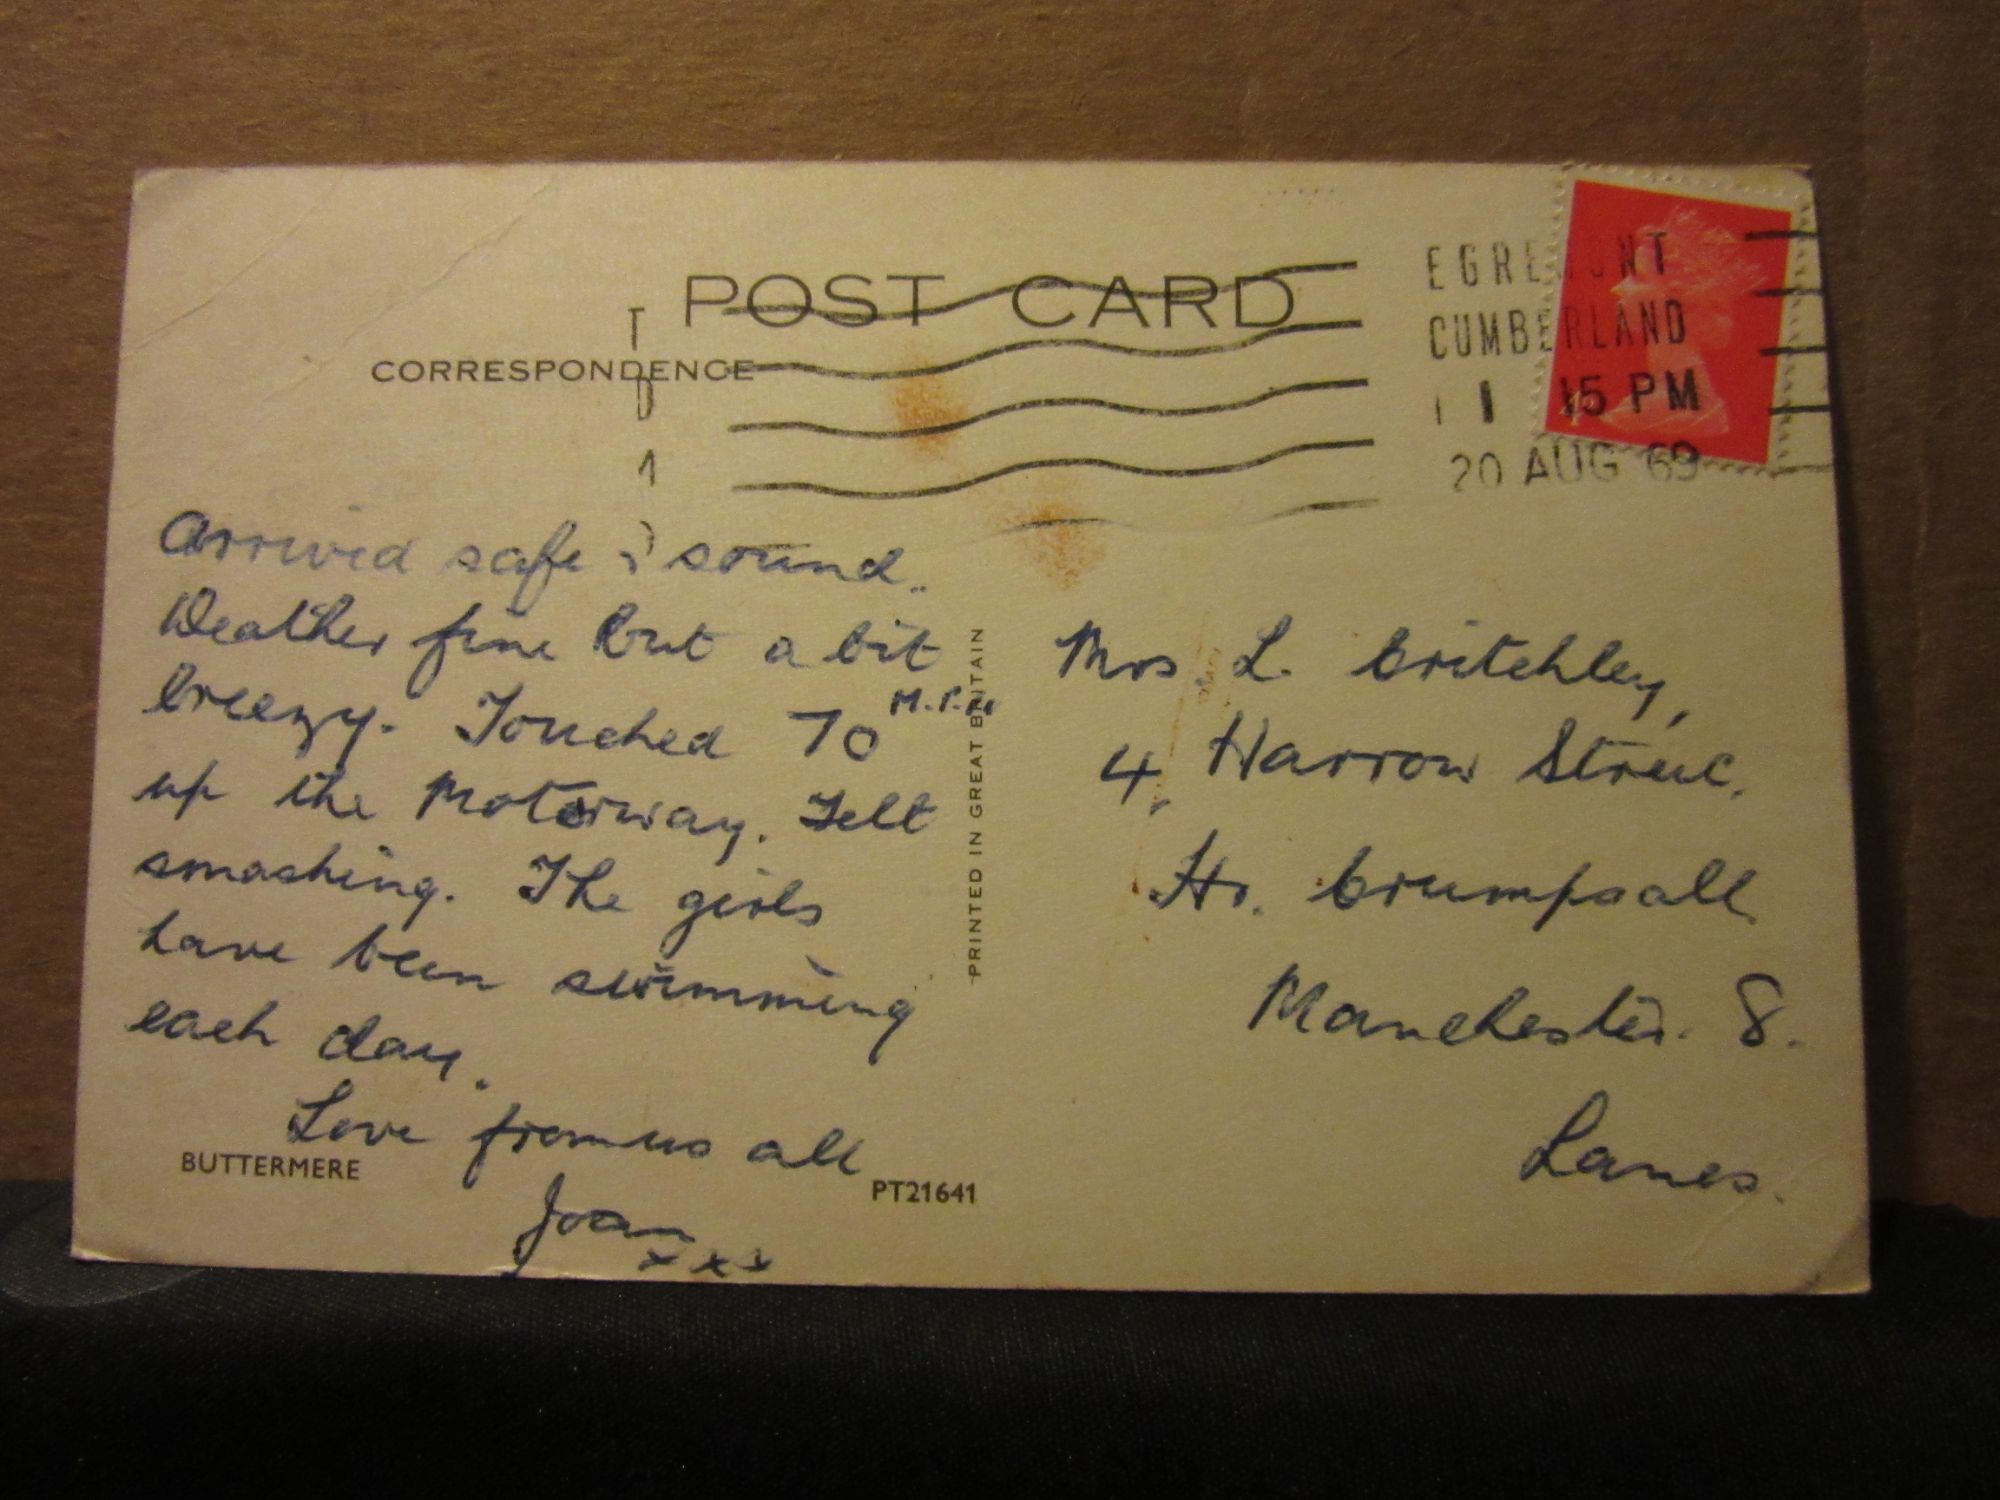 POST CARD
CORRESPONDENCE
EGREMONT
CUMBERLAND
1 15 PM
20 AUG 69
Arrived safe & sound.
Weather fine but a bit
breezy. Touched 70 M.P.H
up the Motorway. Felt
smashing. The girls
have been swimming
each day.
Love from us all
Joan
xxx
BUTTERMERE
PT21641
PRINTED IN GREAT BRITAIN
Mrs. L. Critchley,
4, Harrow Street,
Hr. Crumpsall
Manchester. 8.
Lancs.